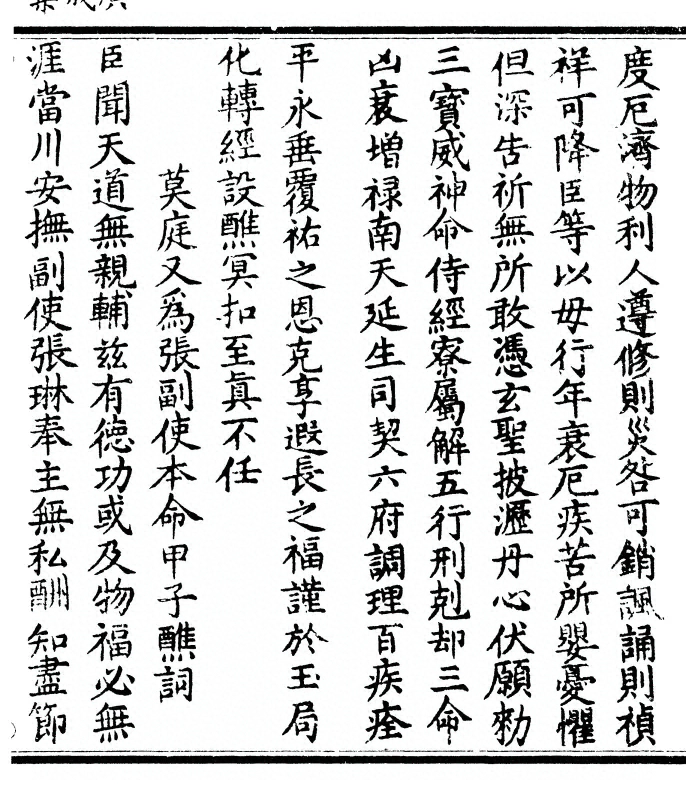 度厄濟物利人遵修則災咎可銷諷誦則禎
祥可降臣等以毋行年衰厄疾苦所嬰憂懼
但深告祈無所敢憑玄聖披瀝丹心伏願勑
三寶威神命侍經寮屬解五行刑剋却三命
凶衰增禄南天延生司契六府調理百疾痊
平永垂覆祐之恩克享遐長之福謹於玉局
化轉經設醮冥扣至眞不任
莫庭乂爲張副使本命甲子醮詞
臣聞天道無親輔兹有德功或及物福必無
涯當川安撫副使張琳奉主無私酬知盡節